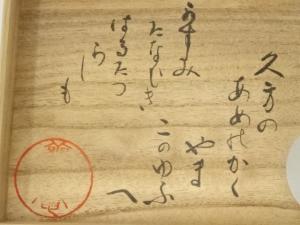 久方の
あめのかく
やま
このゆふ
へ
かすみ
たなひく
はるたつ
らし
も